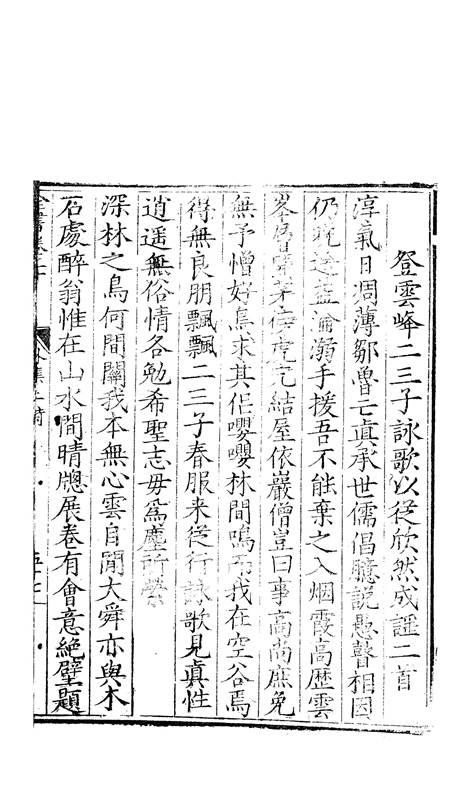 登雲峰二三子詠歌以從欣然成謡二首
淳氣日凋薄鄒魯亡真承世儒倡臆說愚瞽相因
仍晚途益淪溺手援吾不能棄之入烟霞高歷雲
峯層開茅傍虎穴結屋依巖僧豈曰事高尚庶免
無予憎好鳥求其侶嚶嚶林間鳴而我在空谷焉
得無良朋飄飄二三子春服来從行詠歌見真性
逍遥無俗情各勉希聖志毋為塵所縈
深林之鳥何間關我本無心雲自閒大舜亦與木
石處醉翁惟在山水間晴牕展卷有會意絶壁題
五十七